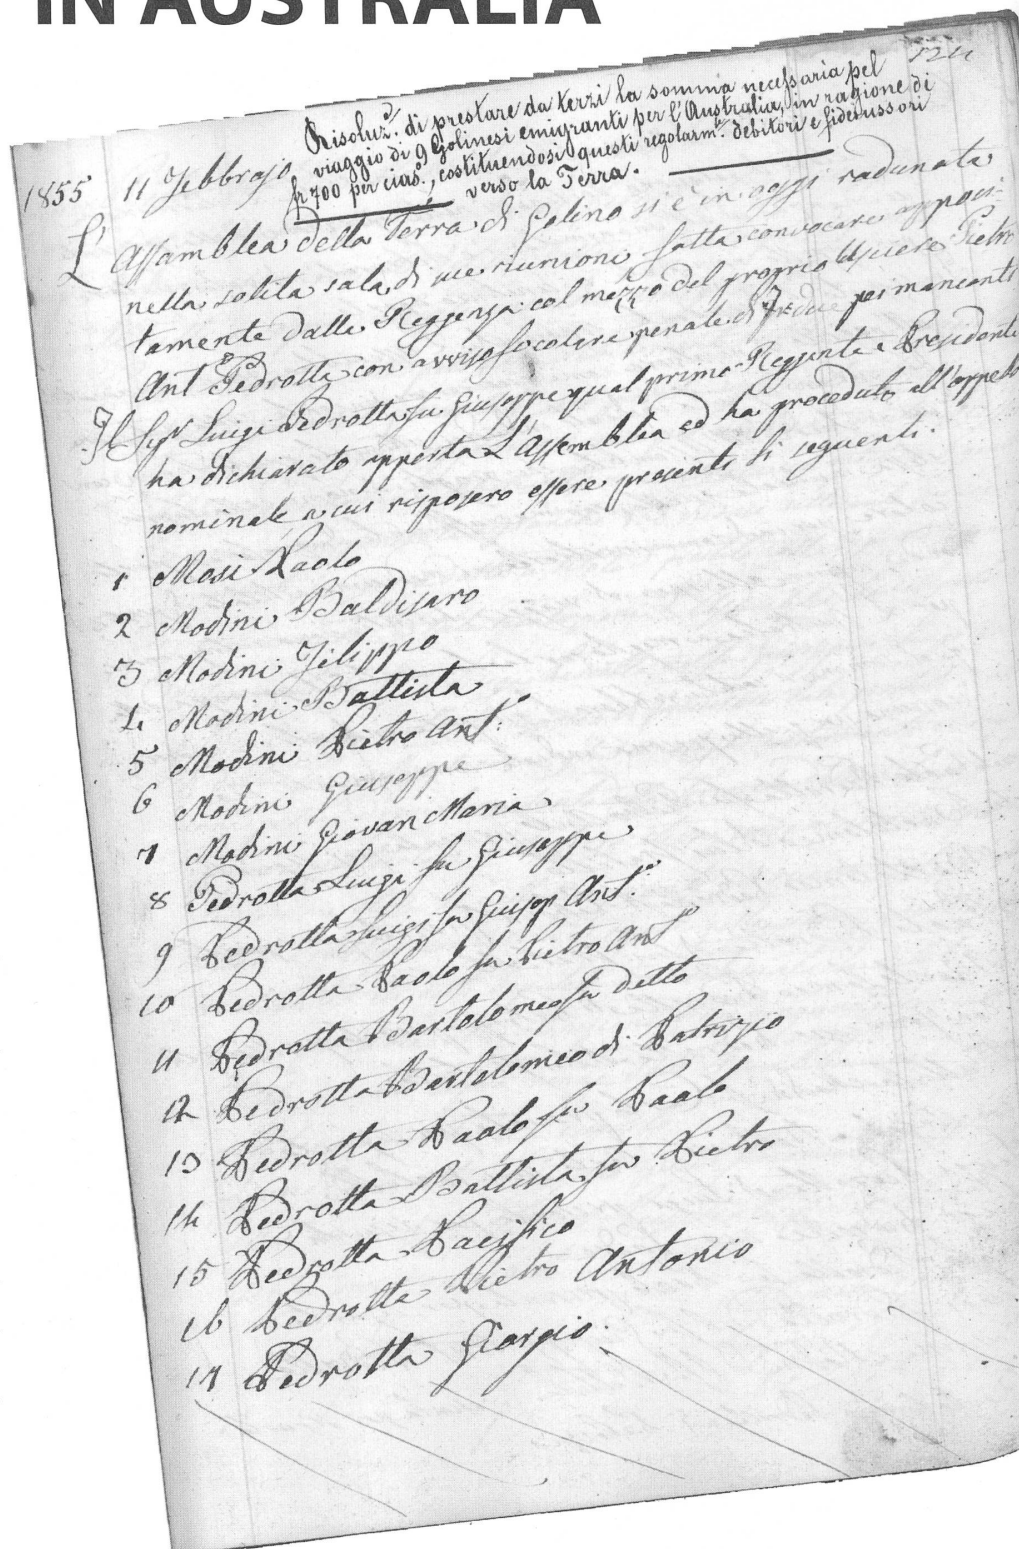 IN AUSTRALIA
124
Risoluz.e di prestare da terzi la somma necessaria pel
viaggio di 9 Golinesi emigranti per l'Australia, in ragione di
fr 700 per cias.o, costituendosi questi regolarm.e debitori e fidejussori
verso la Terra.
1855 11 Febbrajo
L'Assamblea della Terra di Golino si è in oggi radunata
nella solita sala di sue riunioni fatta convocare apposi-
tamente dalla Reggenza col mezzo del proprio Usciere Pietro
Ant.o Pedrotta con avviso focolare penale di fr due pei mancanti
Il Sig.r Luigi Pedrotta fu Giuseppe qual primo Reggente e Presidente
ha dichiarato apperta L'Assemblea ed ha proceduto all'appello
nominale, a cui risposero essere presenti li seguenti.
1 Mosi Paolo
2 Modini Baldisaro
3 Modini Filippo
4 Modini Battista
5 Modini Pietro Ant.o
6 Modini Giuseppe
7 Modini Giovan Maria
8 Pedrotta Luigi fu Giuseppe
9 Pedrotta Luigi fu Guisep Ant.o
10 Pedrotta Paolo fu Pietro Ant.o
11 Pedrotta Bartolomeo fu detto
12 Pedrotta Bartolomeo di Patrizio
13 Pedrotta Paolo fu Paolo
14 Pedrotta Battista fu Pietro
15 Pedrotta Pacifico
16 Pedrotta Pietro Antonio
17 Pedrotta Giorgio.